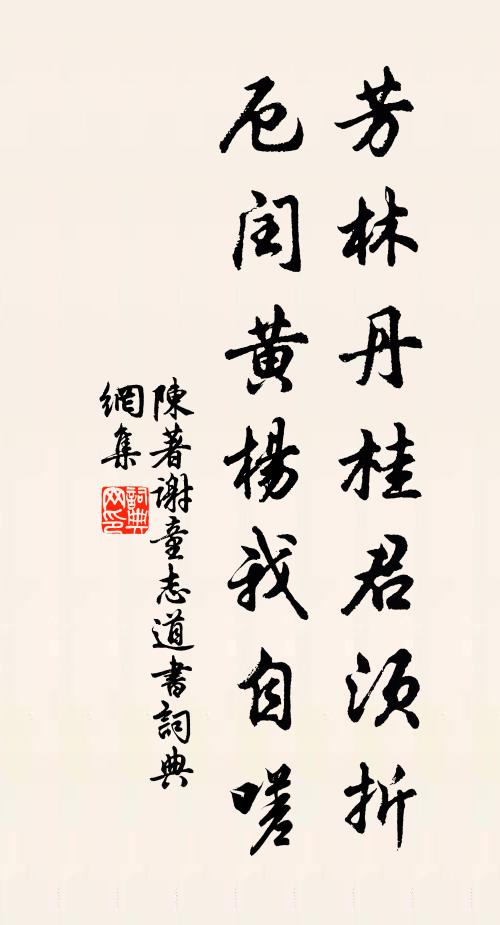 芳林丹桂君須折
厄閏黃楊我自嗟
陳著謝童志道書詞典
網集
詞典網印